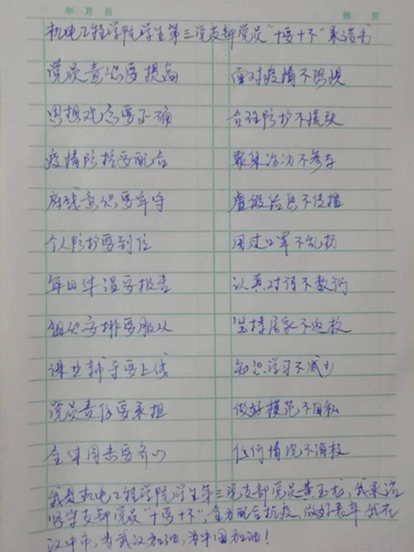 年 月 日 第 页
机电工程学院学生第三党支部党员"十要十不"承诺书
党员意识要提高 面对疫情不恐慌
思想观念要正确 合理防护不慌张
疫情防控要配合 聚集活动不参与
底线意识要牢守 虚假信息不传播
个人防护要到位 用过口罩不乱扔
每日体温要报告 认真对待不敷衍
组织安排要服从 坚持居家不返校
课业辅导要上线 知识学习不减少
党员责任要承担 做好模范不自私
全体同志要齐心 任何情况不消极
我是机电工程学院学生第三党支部党员黄玉龙,我承诺
坚守支部党员"十要十不",全力配合抗疫,做好表率,我在
汉中市,为武汉加油,为中国加油!